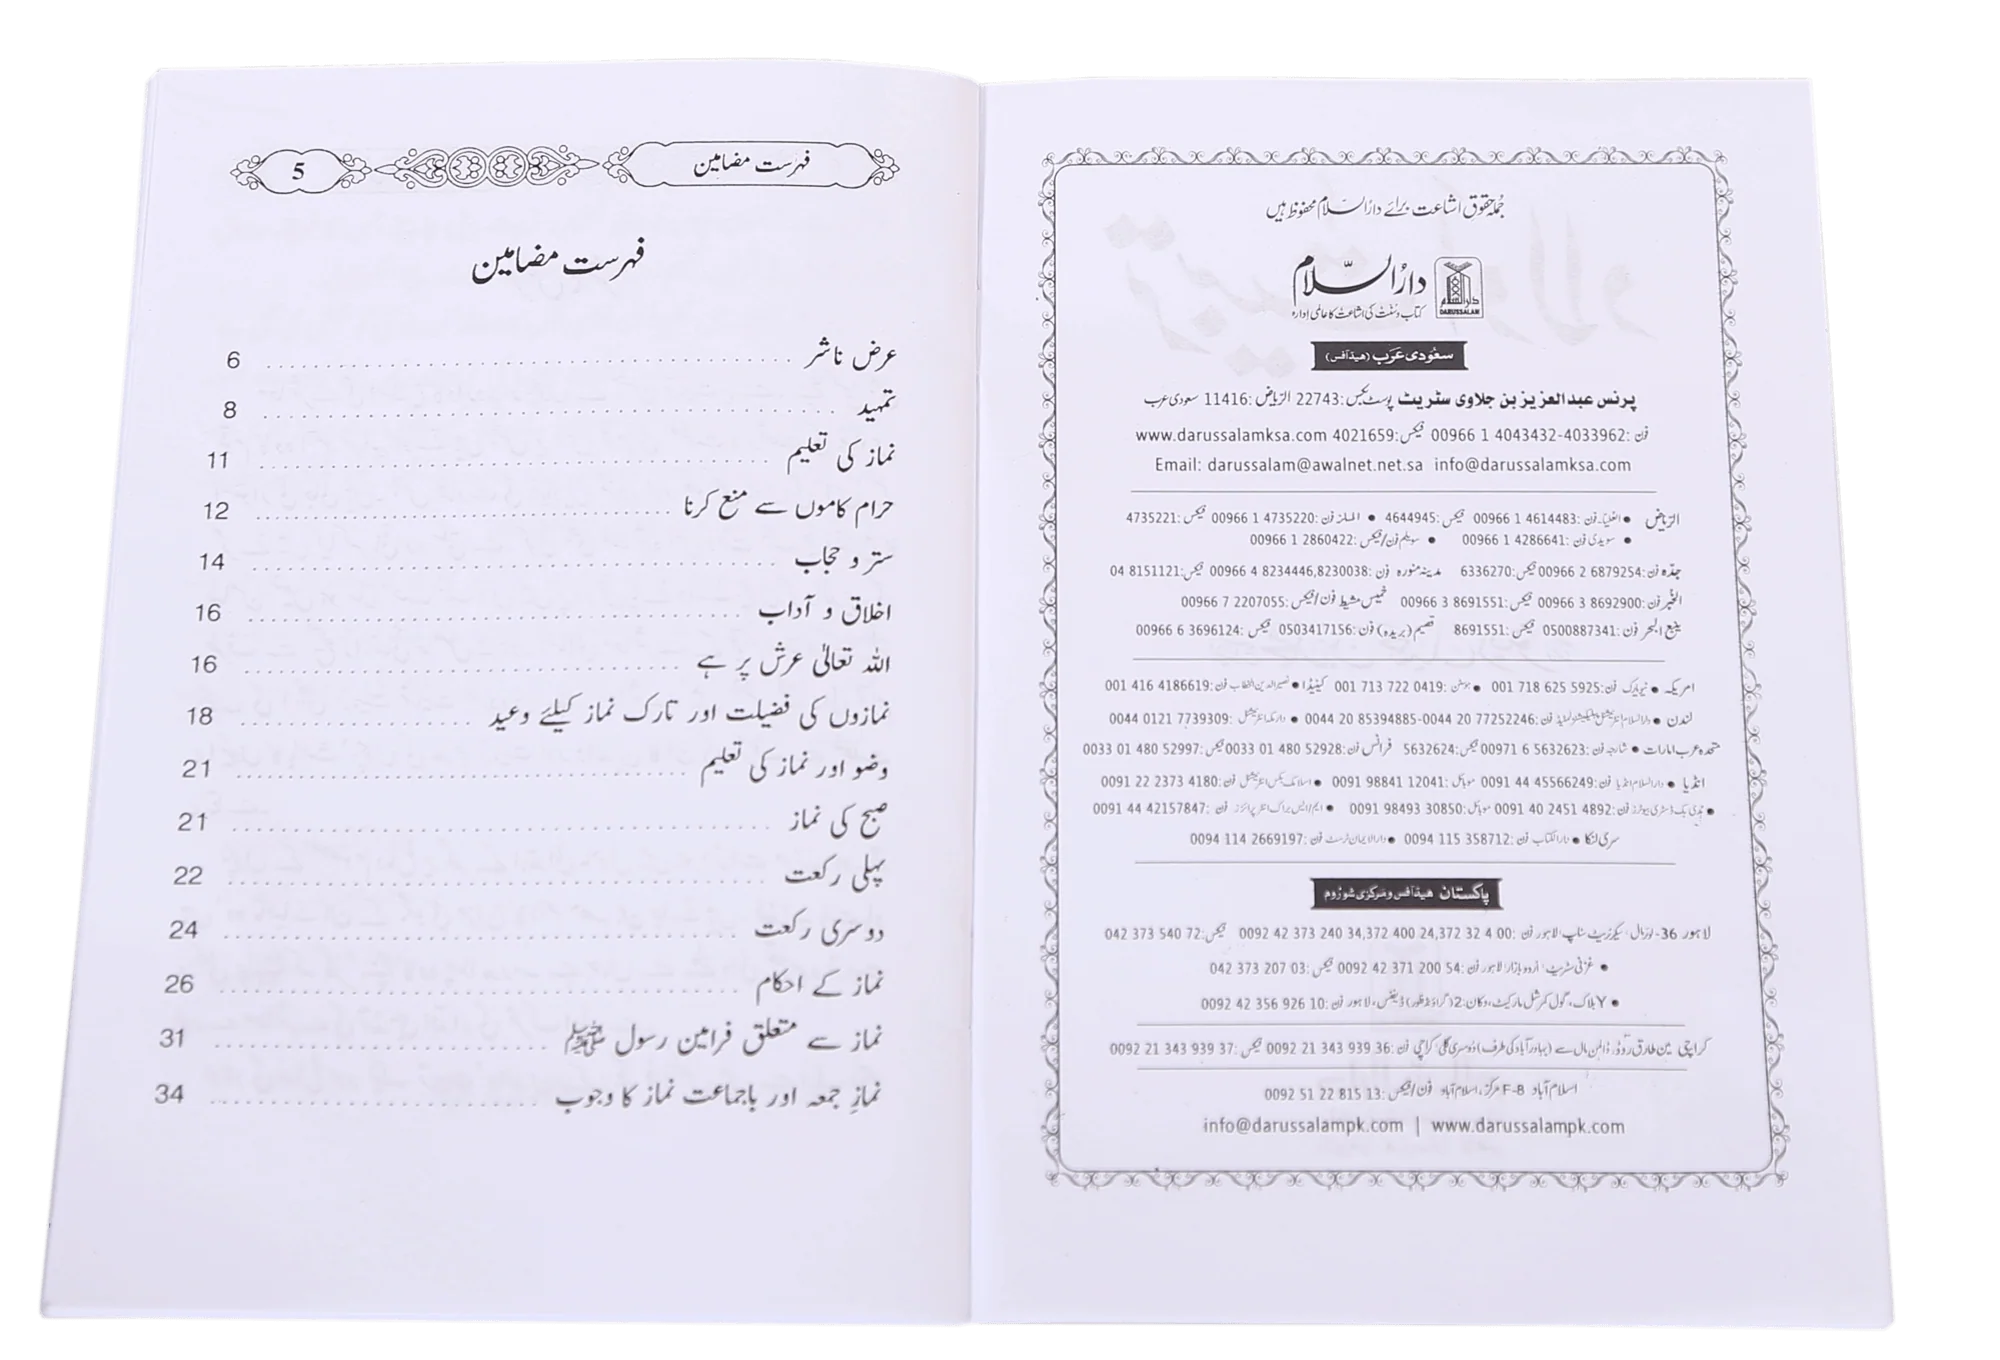 جملہ حقوق اشاعت برائے دارُالسّلام محفوظ ہیں
دارُالسّلام
دارالسلام
DARUSSALAM
کتاب و سنّت کی اشاعت کا عالمی ادارہ
سعودی عَرَب (ھیڈ آفس)
پرنس عبدالعزیز بن جلاوی سٹریٹ پوسٹ بکس: 22743 الرّیاض: 11416 سعودی عرب
فون: 00966 1 4043432-4033962 فیکس: 4021659 www.darussalamksa.com
Email: darussalam@awalnet.net.sa info@darussalamksa.com
الرّیاض • العلیا۔ فون: 00966 1 4614483 فیکس: 4644945 • الملز فون: 00966 1 4735220 فیکس: 4735221
• سویدی فون: 00966 1 4286641 • سویلم فون/فیکس: 00966 1 2860422
جدّہ فون: 00966 2 6879254 فیکس: 6336270 مدینہ منورہ فون: 00966 4 8234446,8230038 فیکس: 04 8151121
الخُبر فون: 00966 3 8692900 فیکس: 00966 3 8691551 خمیس مشیط فون/فیکس: 00966 7 2207055
ینبع البحر فون: 0500887341 فیکس: 8691551 قصیم (بریدہ) فون: 0503417156 فیکس: 00966 6 3696124
امریکہ • نیویارک فون: 001 718 625 5925 • ہوسٹن: 001 713 722 0419 کینیڈا • نصیرالدین الخطاب فون: 001 416 4186619
لندن • دارالسلام انٹرنیشنل پبلیکیشنز لمیٹڈ فون: 0044 20 85394885-0044 20 77252246 • دارمکہ انٹرنیشنل: 0044 0121 7739309
متحدہ عرب امارات • شارجہ فون: 00971 6 5632623 فیکس: 5632624 فرانس فون: 0033 01 480 52928 فیکس: 0033 01 480 52997
انڈیا • دارالسلام انڈیا فون: 0091 44 45566249 موبائل: 0091 98841 12041 • اسلامک بکس انٹرنیشنل فون: 0091 22 2373 4180
• ہُدیٰ بک ڈسٹری بیوٹرز فون: 0091 40 2451 4892 موبائل: 0091 98493 30850 • انٹرپرائزز فون: 0091 44 42157847
سری لنکا • دارالکتاب فون: 0094 115 358712 • دارالایمان ٹرسٹ فون: 0094 114 2669197
پاکستان ھیڈ آفس و مرکزی شوروم
لاہور 36- لوئرمال، سیکرٹریٹ سٹاپ، لاہور فون: 0092 42 373 240 34,372 400 24,372 32 4 00 فیکس: 042 373 540 72
• غزنی سٹریٹ، اُردو بازار، لاہور فون: 0092 42 371 200 54 فیکس: 042 373 207 03
• Y بلاک، گول کمرشل مارکیٹ، دکان: 2 (گراؤنڈ فلور) ڈیفنس، لاہور فون: 0092 42 356 926 10
کراچی مین طارق روڈ، ڈالمن مال سے (بہادرآباد کی طرف) دُوسری گلی، کراچی فون: 0092 21 343 939 36 فیکس: 0092 21 343 939 37
اسلام آباد F-8 مرکز، اسلام آباد فون/فیکس: 0092 51 22 815 13
info@darussalampk.com | www.darussalampk.com
فہرست مضامین 5
فہرست مضامین
عرض ناشر 6
تمہید 8
نماز کی تعلیم 11
حرام کاموں سے منع کرنا 12
ستر و حجاب 14
اخلاق و آداب 16
اللہ تعالیٰ عرش پر ہے 16
نمازوں کی فضیلت اور تارک نماز کیلئے وعید 18
وضو اور نماز کی تعلیم 21
صبح کی نماز 21
پہلی رکعت 22
دوسری رکعت 24
نماز کے احکام 26
نماز سے متعلق فرامین رسول ﷺ 31
نمازِ جمعہ اور باجماعت نماز کا وجوب 34